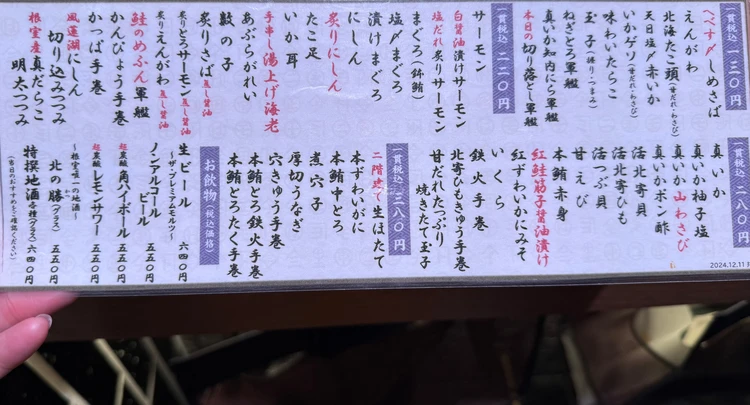 一貫税込 一三〇円
へべす〆しめさば
えんがわ
北海たこ頭(甘だれ・わさび)
天日塩〆赤いか
いかゲソ(甘だれ・わさび)
味わいたらこ
玉子(握り・つまみ)
ねぎとろ軍艦
真いか知内にら軍艦
本日の切り落とし軍艦
一貫税込 二二〇円
サーモン
白醤油漬けサーモン
塩だれ炙りサーモン
まぐろ(鉢鮪)
塩〆まぐろ
漬けまぐろ
にしん
炙りにしん
たこ足
いか耳
手串し湯上げ海老
あぶらがれい
数の子
炙りさば煮し醤油
炙りとろサーモン煮し醤油
炙りえんがわ煮し醤油
鮭のめふん軍艦
かんぴょう手巻
かっぱ手巻
風蓮湖切り込みつつみ
根室産真だらこ
明太つつみ
真いか
真いか柚子塩
真いか山わさび
真いかポン酢
活北寄貝
活北寄ひも
活つぶ貝
甘えび
本鮪赤身
紅鮭筋子醤油漬け
紅ずわいかにみそ
いくら
鉄火手巻
北寄ひもきゅう手巻
甘だれたっぷり
焼きたて玉子
一貫税込 二八〇円
二階建て生ほたて
本ずわいがに
本鮪中とろ
煮穴子
厚切うなぎ
穴きゅう手巻
本鮪とろ鉄火手巻
本鮪とろたく手巻
お飲物(税込価格)
生ビール 六四〇円
~ザ・プレミアムモルツ~
ノンアルコールビール 五五〇円
超炭酸角ハイボール 五五〇円
超炭酸レモンサワー 五五〇円
~根室唯一の地酒~
北の勝(グラス) 五五〇円
特撰地酒各種(グラス) 六四〇円
(本日のおすすめをご確認ください)
2024.12.11